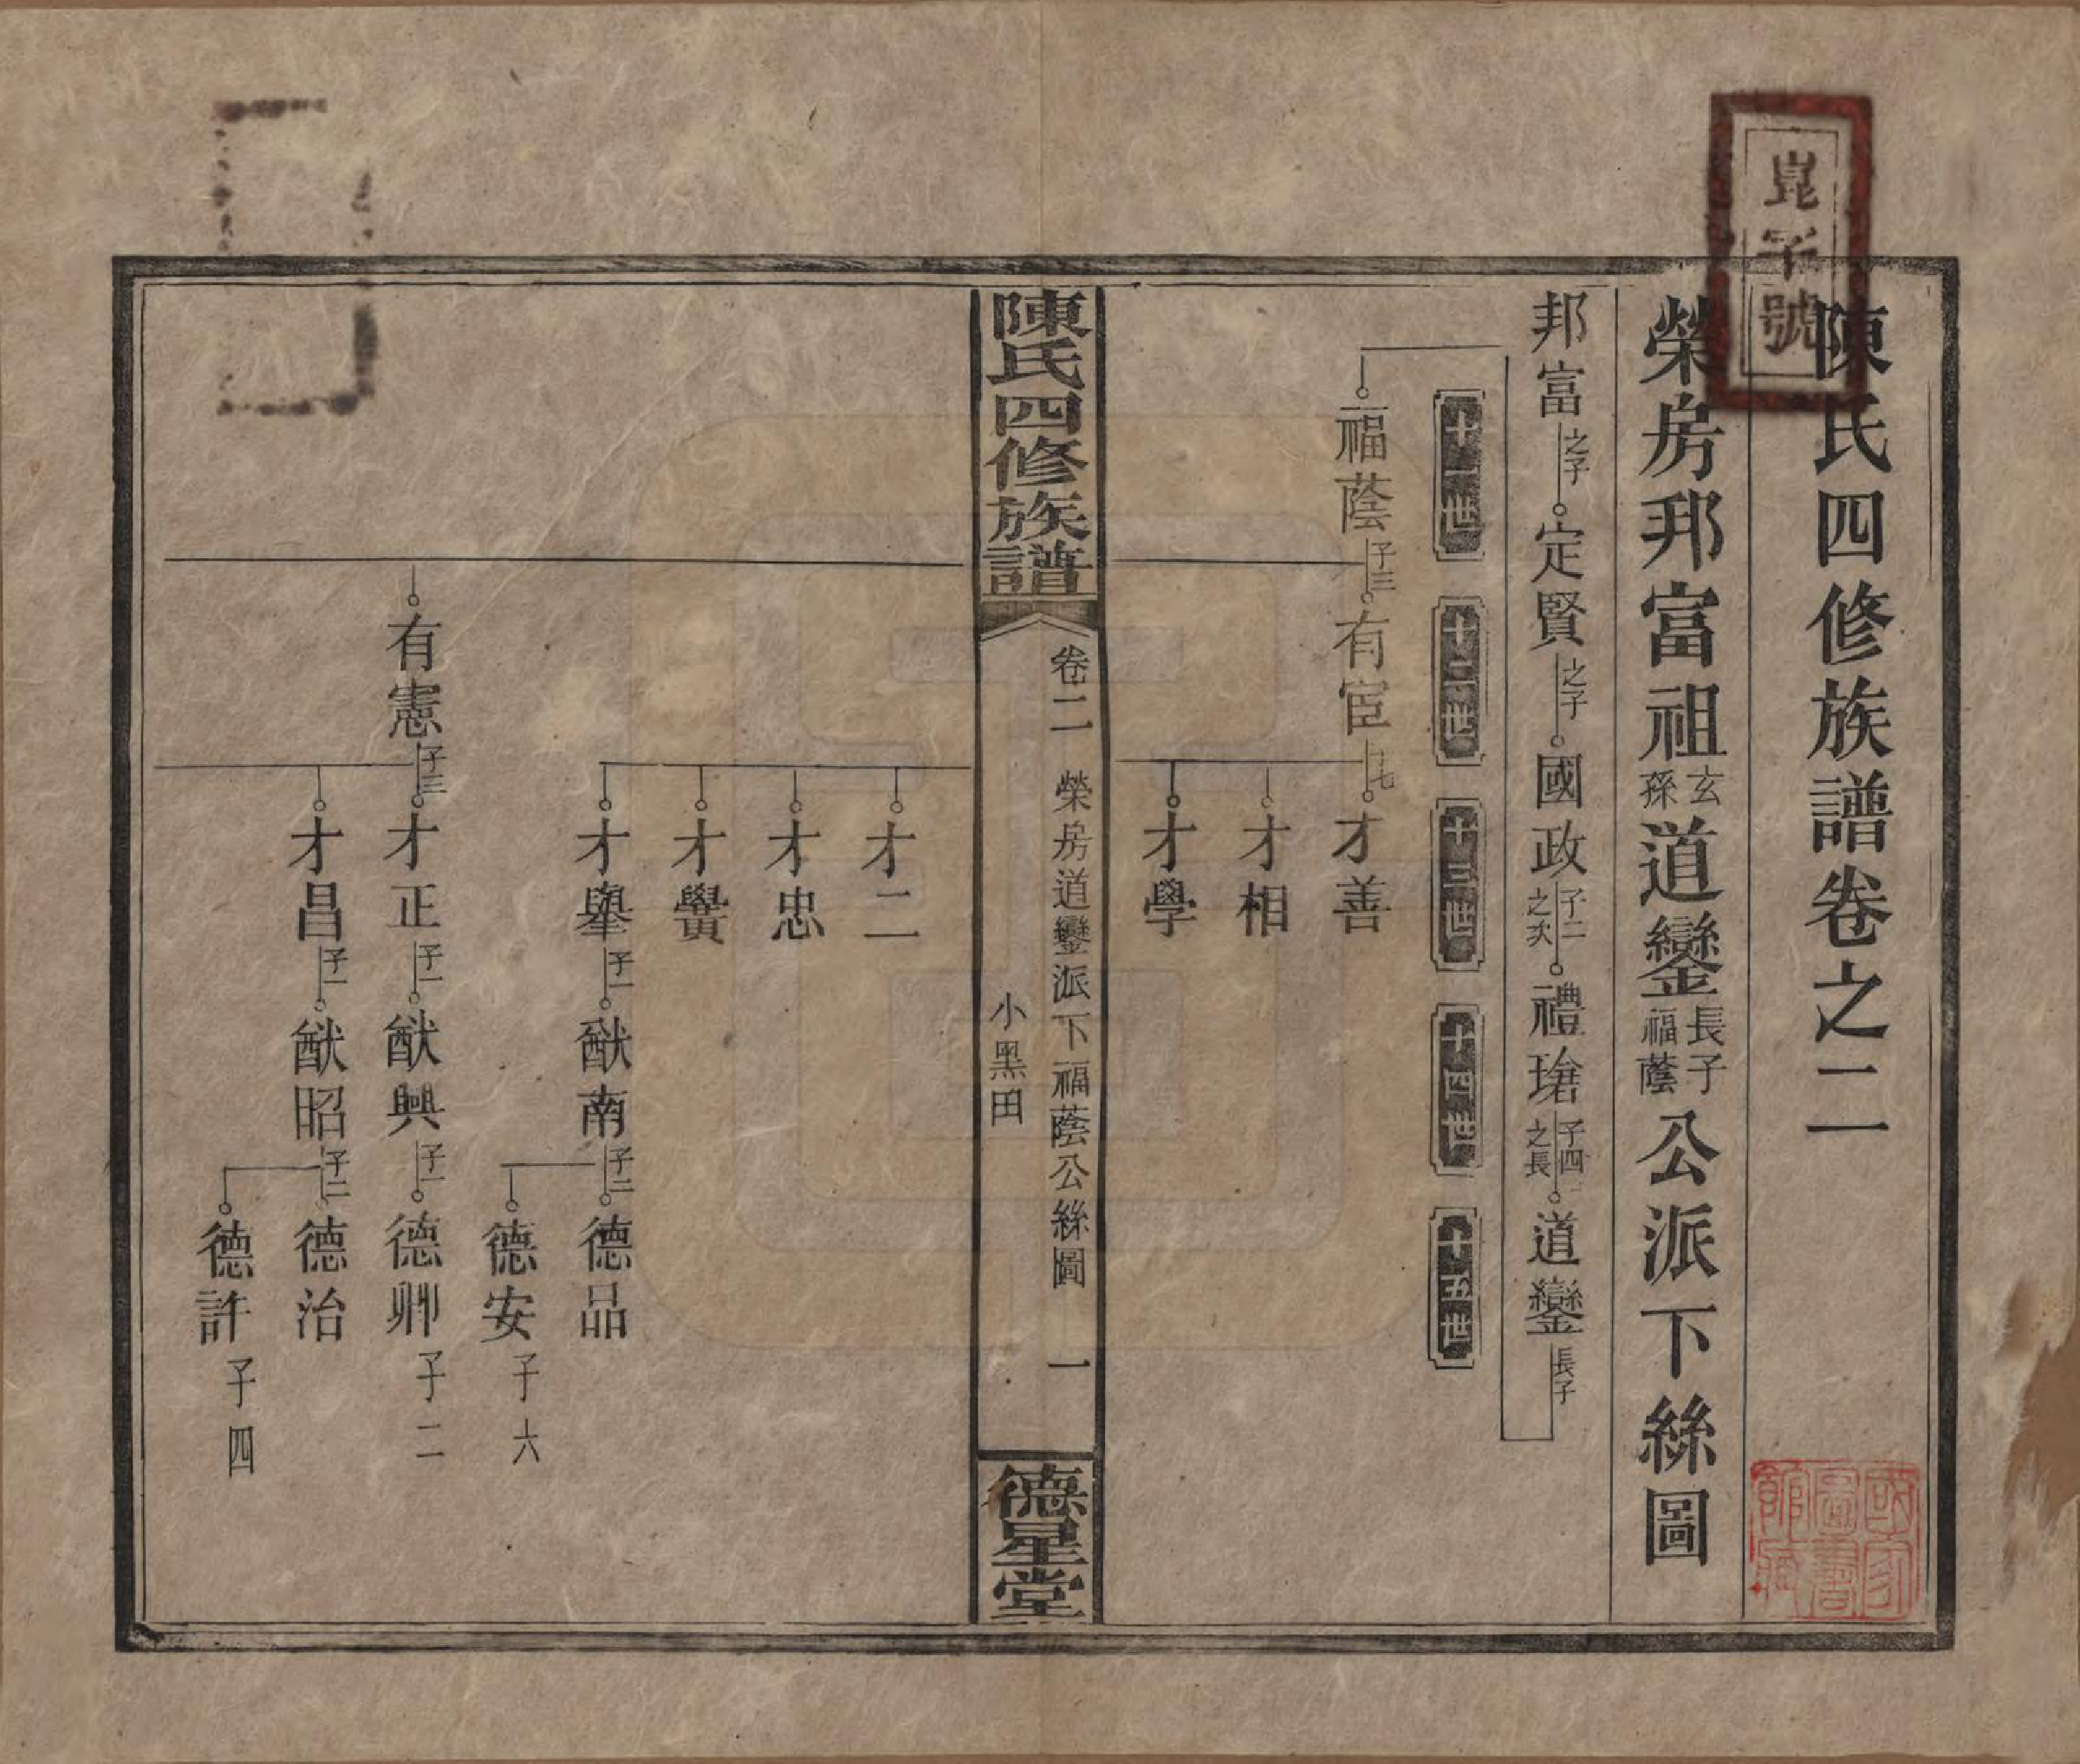 陳氏四修族譜卷之二
榮房邦富祖玄孫道鑾長子福蔭公派下絲圖
邦富之子定賢之子國政子二之次禮典瑃子四之長道鑾長子
十一世
十二世
十三世
十四世
十五世
福蔭子三有宦子七才善
才相
才學
陳氏四修族譜
卷二 榮房道鑾派下福蔭公絲圖 一
小黑田
德星堂
才二
才忠
才黌
才舉子一猷南子二德品
德安子六
有憲子三才正子一猷興子一德卿子二
才昌子一猷昭子二德治
德許子四
崑字號
國家圖書館藏